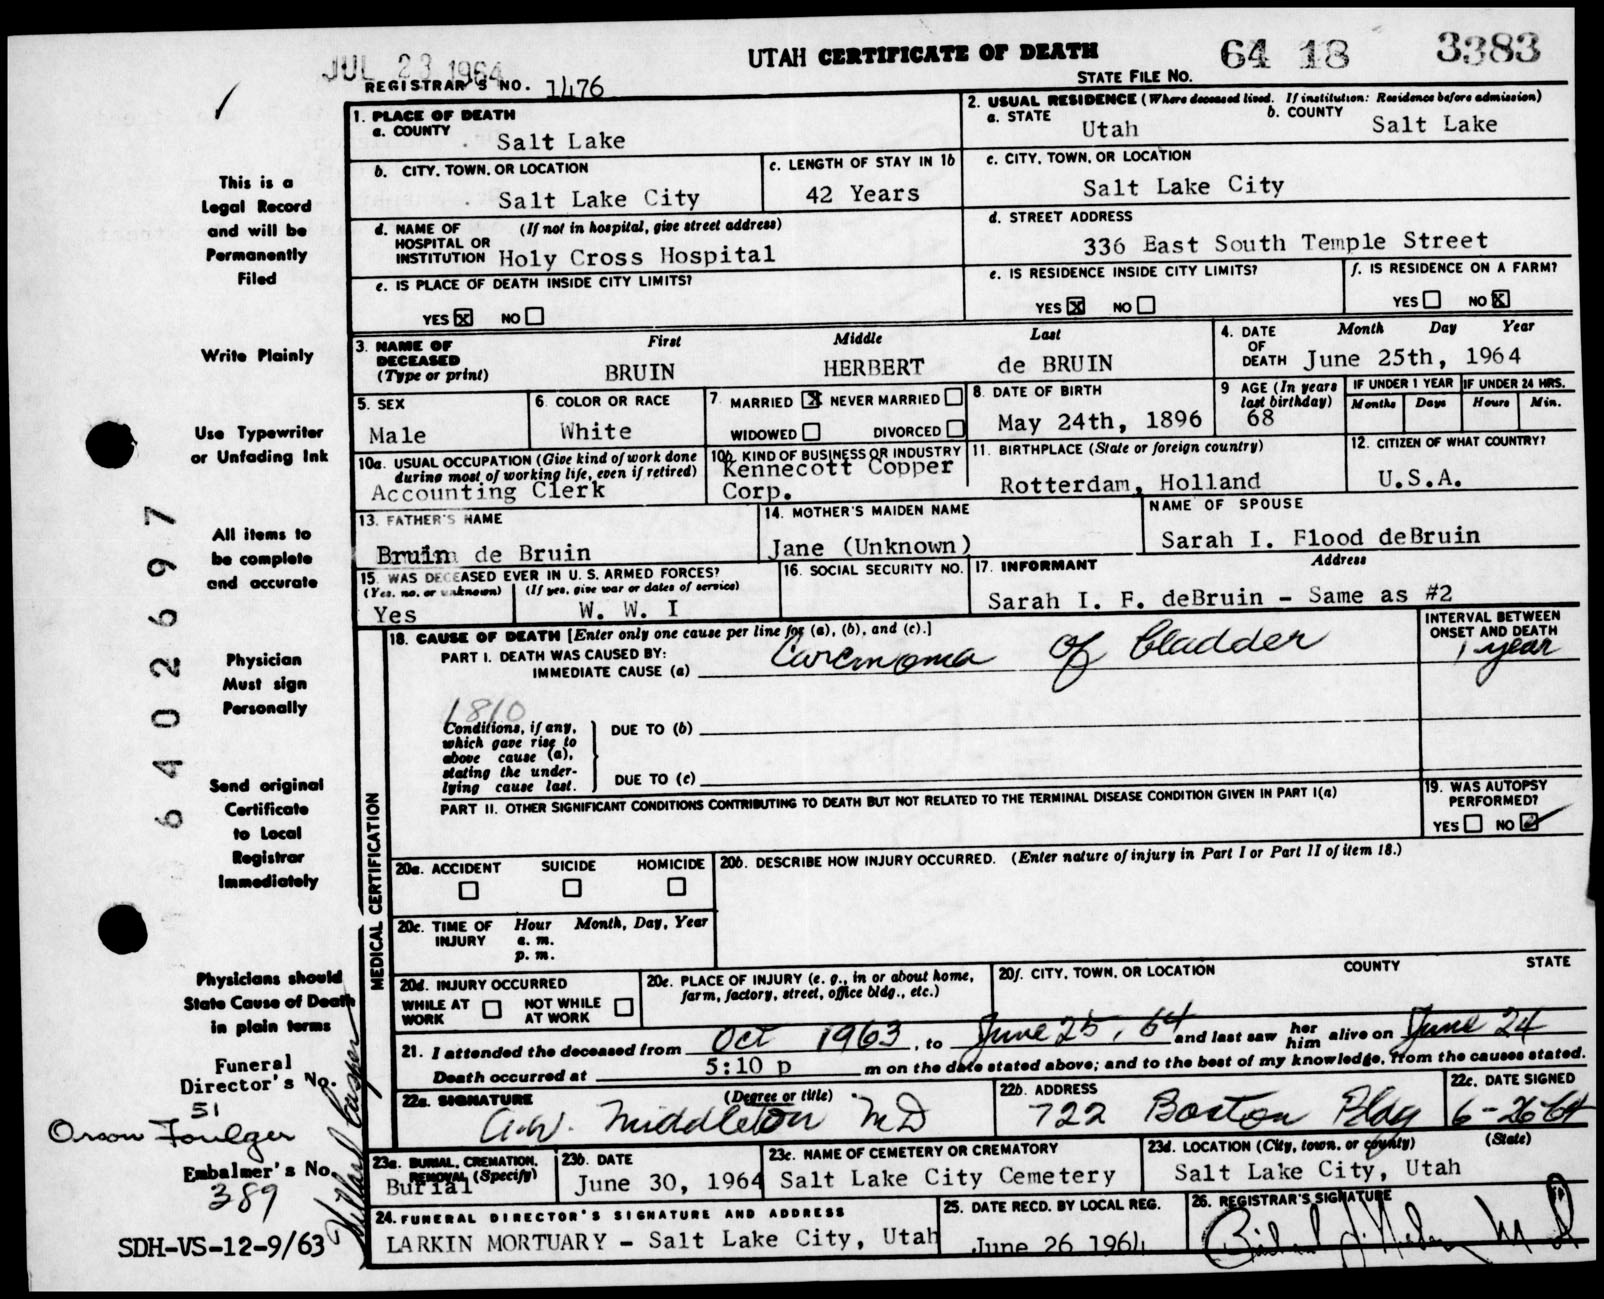 JUL 23 1964
UTAH CERTIFICATE OF DEATH
64 18 3383
STATE FILE NO.
REGISTRAR'S NO. 1476
1. PLACE OF DEATH
a. COUNTY
Salt Lake
2. USUAL RESIDENCE (Where deceased lived. If institution: Residence before admission)
a. STATE Utah b. COUNTY Salt Lake
b. CITY, TOWN, OR LOCATION
Salt Lake City
c. LENGTH OF STAY IN 1b
42 Years
c. CITY, TOWN, OR LOCATION
Salt Lake City
d. NAME OF HOSPITAL OR INSTITUTION (If not in hospital, give street address)
Holy Cross Hospital
d. STREET ADDRESS
336 East South Temple Street
e. IS PLACE OF DEATH INSIDE CITY LIMITS?
YES X NO
e. IS RESIDENCE INSIDE CITY LIMITS?
YES X NO
f. IS RESIDENCE ON A FARM?
YES NO X
3. NAME OF DECEASED (Type or print)
First Middle Last
BRUIN HERBERT de BRUIN
4. DATE OF DEATH Month Day Year
June 25th, 1964
5. SEX
Male
6. COLOR OR RACE
White
7. MARRIED X NEVER MARRIED
WIDOWED DIVORCED
8. DATE OF BIRTH
May 24th, 1896
9 AGE (In years last birthday)
68
IF UNDER 1 YEAR IF UNDER 24 HRS.
Months Days Hours Min.
10a. USUAL OCCUPATION (Give kind of work done during most of working life, even if retired)
Accounting Clerk
10b. KIND OF BUSINESS OR INDUSTRY
Kennecott Copper
Corp.
11. BIRTHPLACE (State or foreign country)
Rotterdam, Holland
12. CITIZEN OF WHAT COUNTRY?
U.S.A.
13. FATHER'S NAME
Bruin de Bruin
14. MOTHER'S MAIDEN NAME
Jane (Unknown)
NAME OF SPOUSE
Sarah I. Flood deBruin
15. WAS DECEASED EVER IN U. S. ARMED FORCES?
(Yes, no, or unknown) (If yes, give war or dates of service)
Yes W. W. I
16. SOCIAL SECURITY NO.
17. INFORMANT Address
Sarah I. F. deBruin - Same as #2
MEDICAL CERTIFICATION
18. CAUSE OF DEATH [Enter only one cause per line for (a), (b), and (c).]
PART I. DEATH WAS CAUSED BY:
IMMEDIATE CAUSE (a) Carcinoma of bladder
INTERVAL BETWEEN ONSET AND DEATH
1 year
1810
Conditions, if any, which gave rise to above cause (a), stating the under-lying cause last.
DUE TO (b)
DUE TO (c)
PART II. OTHER SIGNIFICANT CONDITIONS CONTRIBUTING TO DEATH BUT NOT RELATED TO THE TERMINAL DISEASE CONDITION GIVEN IN PART I(a)
19. WAS AUTOPSY PERFORMED?
YES NO ✓
20a. ACCIDENT SUICIDE HOMICIDE
20b. DESCRIBE HOW INJURY OCCURRED. (Enter nature of injury in Part I or Part II of item 18.)
20c. TIME OF INJURY Hour Month, Day, Year
a. m.
p. m.
20d. INJURY OCCURRED
WHILE AT WORK NOT WHILE AT WORK
20e. PLACE OF INJURY (e. g., in or about home, farm, factory, street, office bldg., etc.)
20f. CITY, TOWN, OR LOCATION COUNTY STATE
21. I attended the deceased from Oct 1963, to June 25, 64 and last saw her him alive on June 24
Death occurred at 5:10 p m on the date stated above; and to the best of my knowledge, from the causes stated.
22a. SIGNATURE (Degree or title)
A.W. Middleton MD
22b. ADDRESS
722 Boston Bldg
22c. DATE SIGNED
6-26-64
23a. BURIAL, CREMATION, REMOVAL (Specify)
Burial
23b. DATE
June 30, 1964
23c. NAME OF CEMETERY OR CREMATORY
Salt Lake City Cemetery
23d. LOCATION (City, town, or county) (State)
Salt Lake City, Utah
24. FUNERAL DIRECTOR'S SIGNATURE AND ADDRESS
LARKIN MORTUARY - Salt Lake City, Utah
25. DATE RECD. BY LOCAL REG.
June 26 1964
26. REGISTRAR'S SIGNATURE
This is a
Legal Record
and will be
Permanently
Filed
Write Plainly
Use Typewriter
or Unfading Ink
All items to
be complete
and accurate
Physician
Must sign
Personally
Send original
Certificate
to Local
Registrar
Immediately
Physicians should
State Cause of Death
in plain terms
Funeral
Director's No.
51
Orson Foulger
Embalmer's No.
389
SDH-VS-12-9/63
6402697